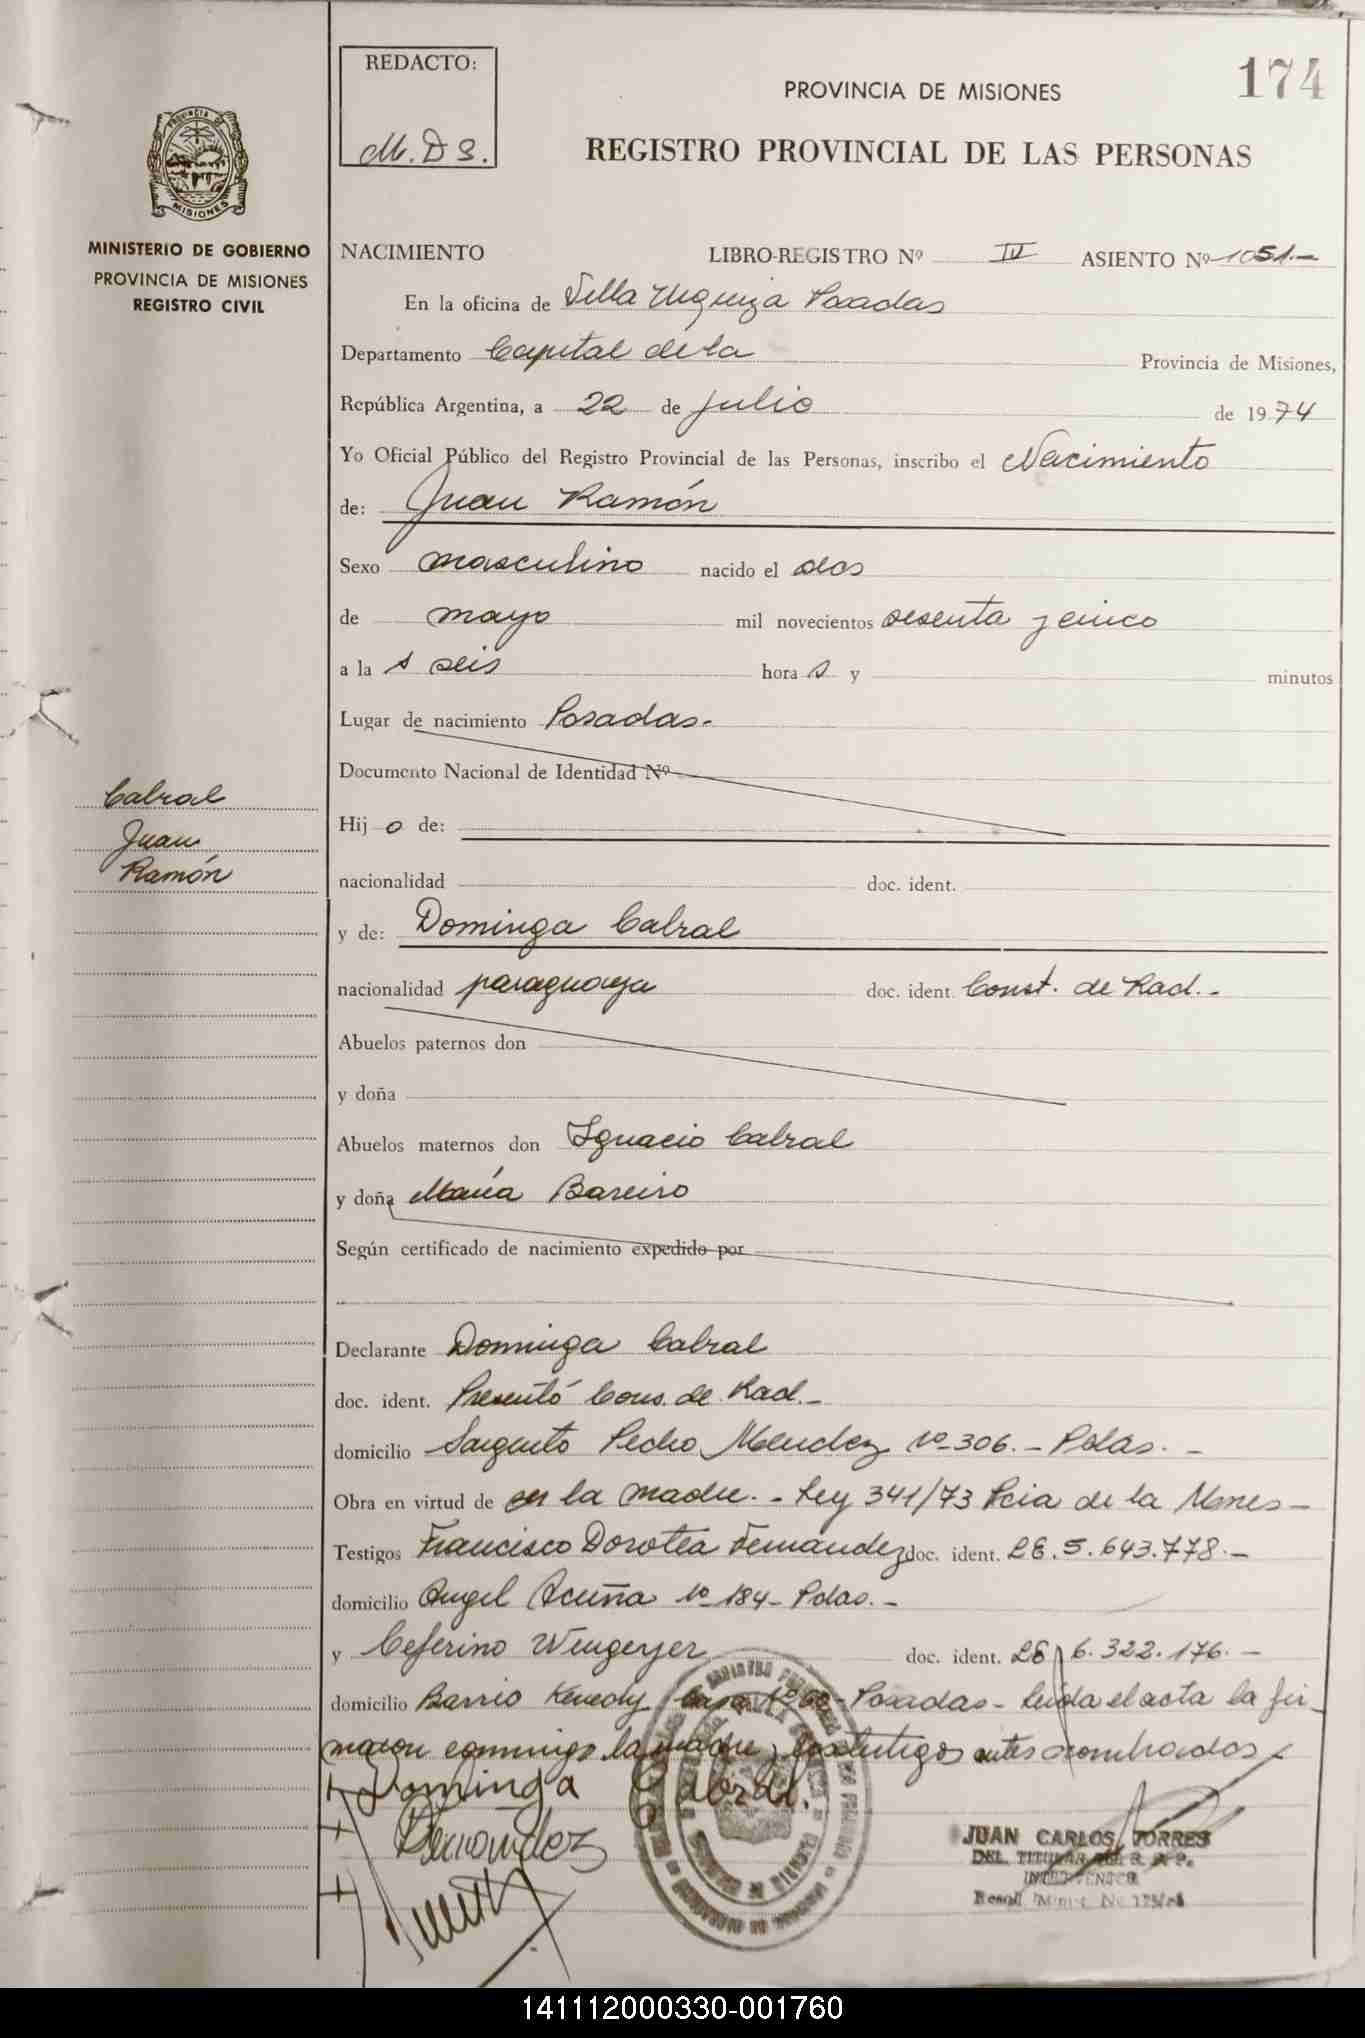 REDACTO:
M.D S.
174
PROVINCIA DE MISIONES
REGISTRO PROVINCIAL DE LAS PERSONAS
PROVINCIA DE
MISIONES
MINISTERIO DE GOBIERNO
PROVINCIA DE MISIONES
REGISTRO CIVIL
NACIMIENTO LIBRO-REGISTRO Nº IV ASIENTO Nº 1051.-
En la oficina de Villa Urquiza Posadas
Departamento Capital de la Provincia de Misiones,
República Argentina, a 22 de julio de 1974
Yo Oficial Público del Registro Provincial de las Personas, inscribo el Nacimiento
de: Juan Ramón
Sexo masculino nacido el dos
de mayo mil novecientos sesenta y cinco
a la s seis hora s y minutos
Lugar de nacimiento Posadas.-
Documento Nacional de Identidad Nº
Cabral
Juan
Ramón
Hij o de:
nacionalidad doc. ident.
y de: Dominga Cabral
nacionalidad paraguaya doc. ident. Const. de Rad.-
Abuelos paternos don
y doña
Abuelos maternos don Ignacio Cabral
y doña María Bareiro
Según certificado de nacimiento expedido por
Declarante Dominga Cabral
doc. ident. Presentó Cons. de Rad.-
domicilio Sargento Pedro Mendez nº 306.- Pdas.-
Obra en virtud de ser la madre.- Ley 341/73 Pcia de la Mnes-
Testigos Francisco Dorotea Fernandez doc. ident. LE. 5.643.778.-
domicilio Angel Acuña nº 184- Pdas.-
y Ceferino Wengeyer doc. ident. LE 6.322.176.-
domicilio Barrio Kenedy Casa Nº 60- Posadas- Leída el acta la fir-
maron conmigo la madre y los testigos antes nombrados.-
Dominga Cabral.
Fernandez
JUAN CARLOS TORRES
DEL TITULAR
141112000330-001760